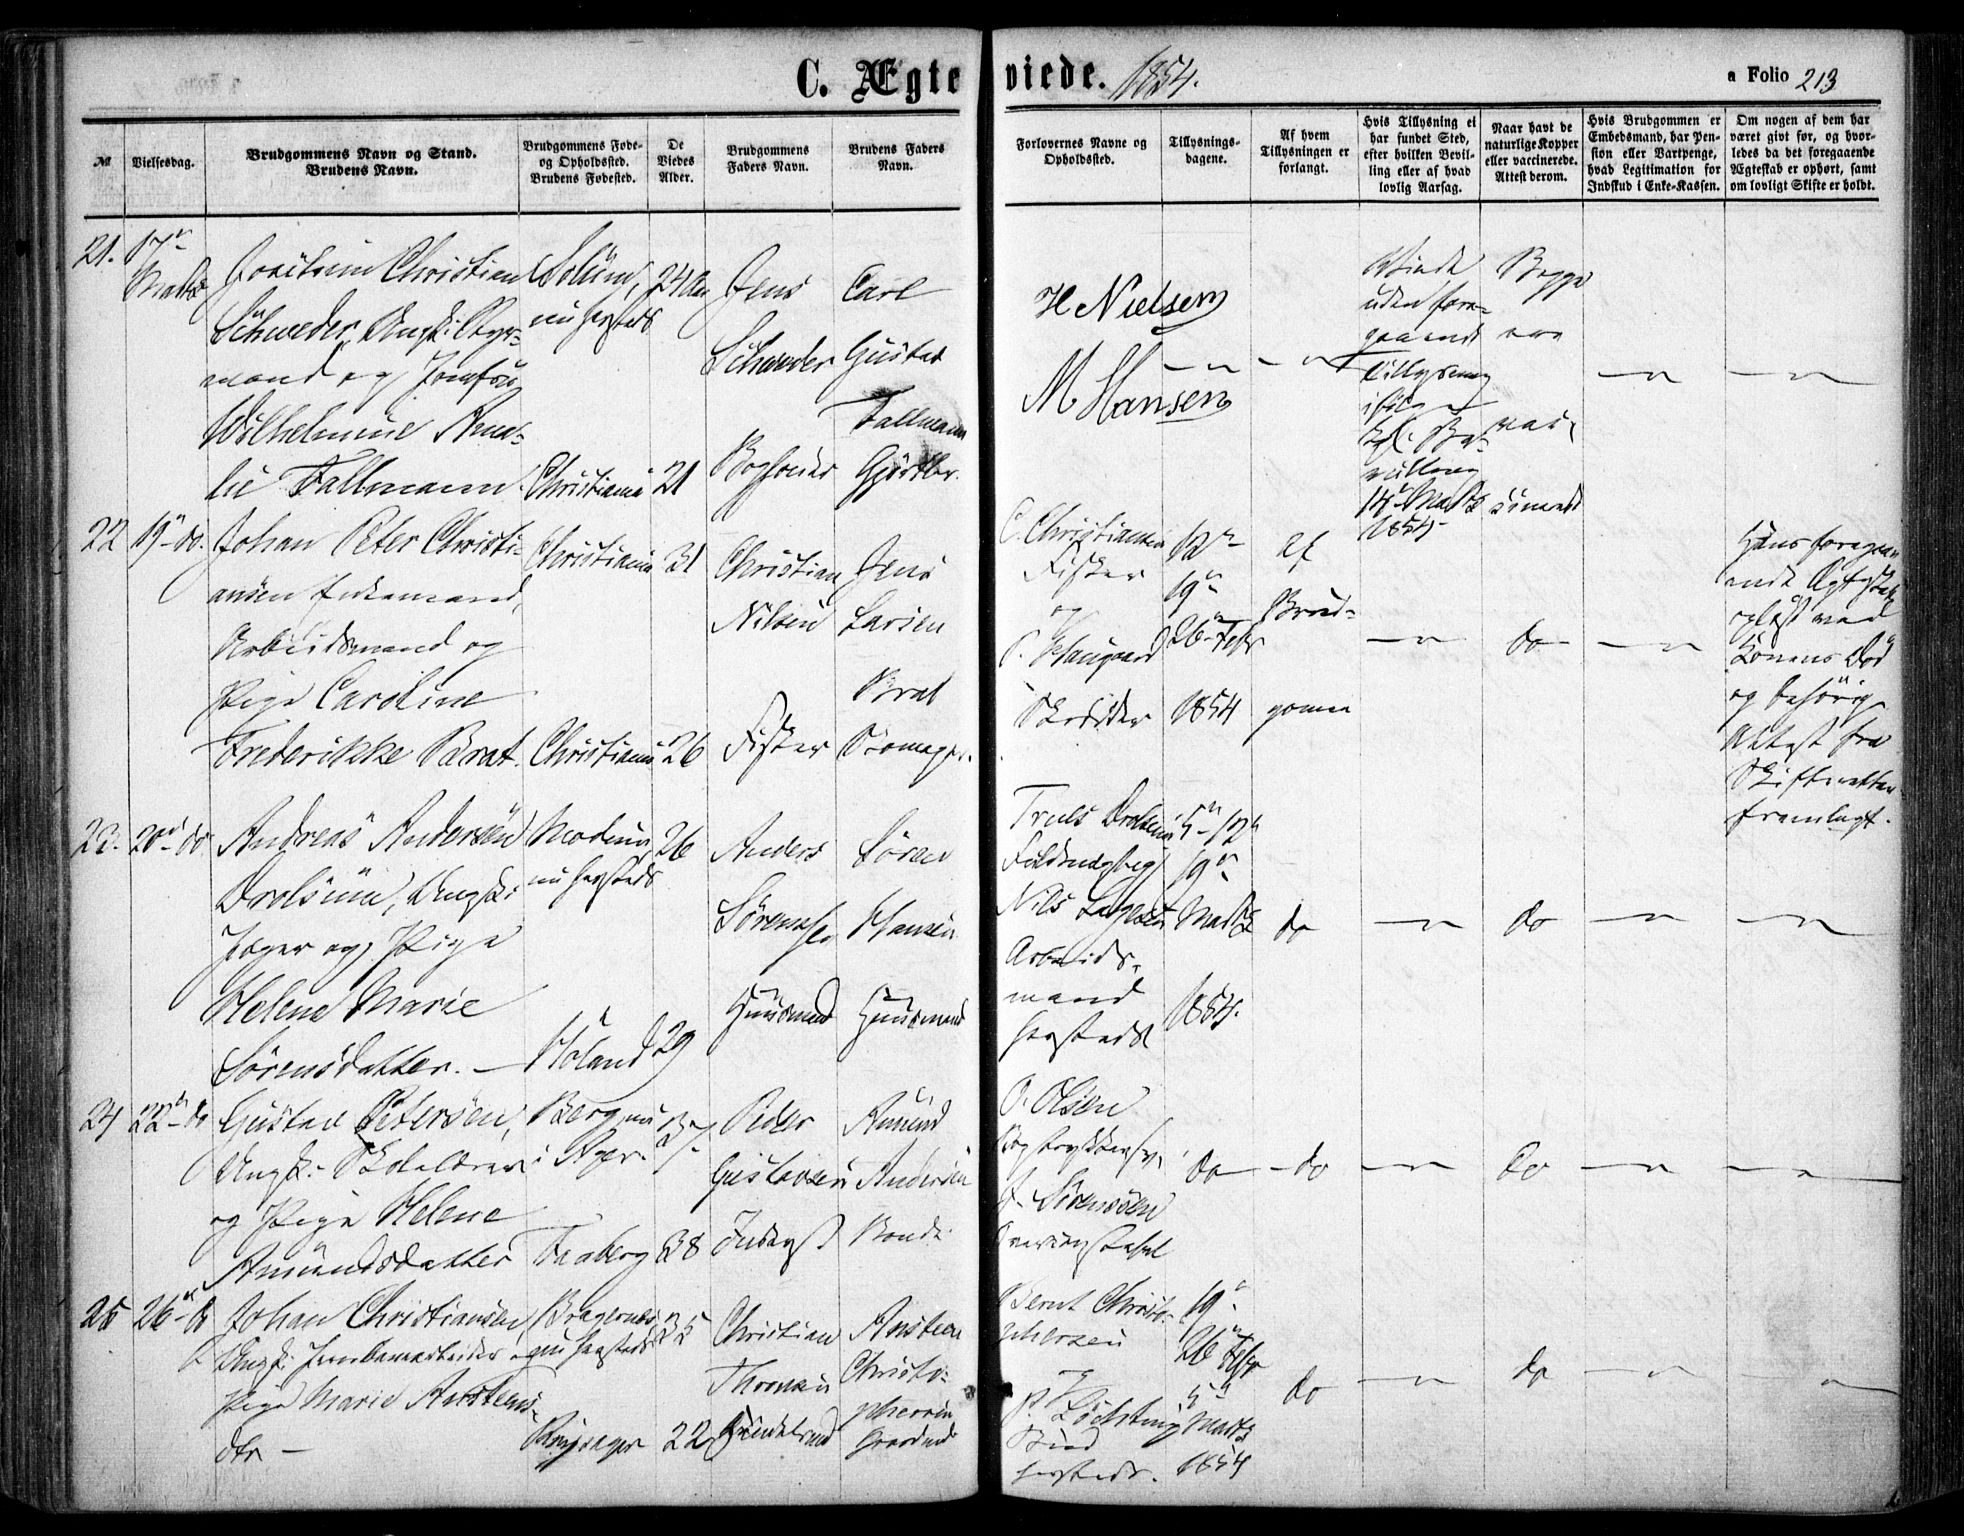 C. Ægteviede. 1854.
a Folio 213
№
Vielsesdag.
Brudgommens Navn og Stand.
Brudens Navn.
Brudgommens Føde-
og Opholdssted.
Brudens Fødested.
De
Viedes
Alder.
Brudgommens
Faders Navn.
Brudens Faders
Navn.
Forlovernes Navne og
Opholdssted.
Tillysnings-
dagene.
Af hvem
Tillysningen er
forlangt.
Hvis Tillysning ei
har fundet Sted,
efter hvilken Bevil-
ling eller af hvad
lovlig Aarsag.
Naar havt de
naturlige Kopper
eller vaccinerede.
Attest derom.
Hvis Brudgommen er
Embedsmand, har Pen-
sion eller Vartpenge,
hvad Legitimation for
Indskud i Enke-Kassen.
Om nogen af dem har
været givt før, og hvor-
ledes da det foregaaende
Ægteskab er ophørt, samt
om lovligt Skifte er holdt.
21.
17de
Marts
Joachim Christian
Schweder, Ungk: Styr-
mand og Jomfru
Wilhelmine Ama-
lie Fallmann
nu hersteds
Christiania
24 Aar
21
Jens
Schweder
Carl
Gustav
Fallmann
Gjørtler.
H Nielsen
M Hansen
Viede
uden fore-
gaaende
Tillysning
ifølge
Kgl. Be-
villing
14de Marts
1854
Begge
ere
vac-
cinerede
22
19de do.
Johan Peter Christi-
ansen Enkemand,
Arbeidsmand og
Pige Caroline
Frederikke Brat.
Christiania
Christiania
31
26
Christian
Nilsen
Fisker
Jens
Larsen
Brat
Skomager.
C. Christiansen
Fisker
og
P. Haugaard
Skrædder
12te
19de
26de Febr
1854
af
Brud-
gomen
do
Hans foregaa-
ende Ægteskab
opløst ved
Konens Død
og behørig
Attest fra
Skifteretten
fremlagt.
23.
20de do.
Andreas Andersen
Drolsum, Ungk:
Jæger og Pige
Helene Marie
Sørensdatter. —
Modum,
nu hersteds
Høland
26
29
Anders
Sørensen
Huusmand
Søren
Hansen
Huusmand
Truls
Nils
Arbeids-
mand
hersteds
5te 12te
19de
Marts
1854.
do
do
24
22de do
Gustav Petersen,
Ungk: Skolelærer
og Pige Helene
Amundsdatter
Berg, nu
i Ager.
Faaberg
37
38
Peder
Gustavsen
Inderst
Amund
Andersen
Bonde
O. Olsen
Bogtrykkersv.
J. Sørensen
do
do
do
25
26de do
Johan Christiansen
Ungk: Jernbanearbeider og
Pige Marie Anstens-
dtr —
Bragernæs
nu hersteds
35
22
Christian
Thronsen
Ansten
Christo-
phersen
Gaardmd
Bernt Christo-
phersen
og
P.
hersteds.
19de
26de Febr
5te
Marts
1854
do
do